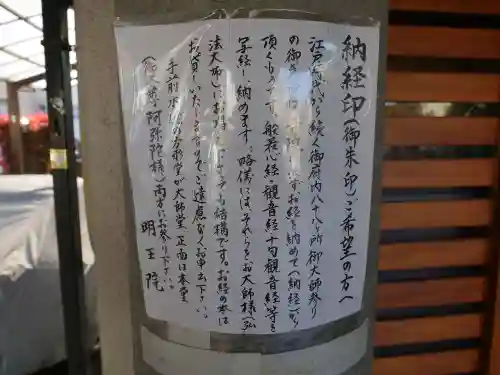 納経印(御朱印)ご希望の方へ
江戸時代から続く御府内八十八ヶ所御大師参り
の御寺院は、必ずお経を納めて(納経)から
頂くものです。般若心経・観音経・十句観音経等を
写経し、納めます。略儀にはそれらをお大師様(弘
法大師)にお唱えするのでも結構です。お経の本は
お貸しいたしますのでご遠慮なくお申出下さい。
手前水の方形堂が大師堂、正面は本堂
(阿弥陀様)両方にお参り下さい。
明王院